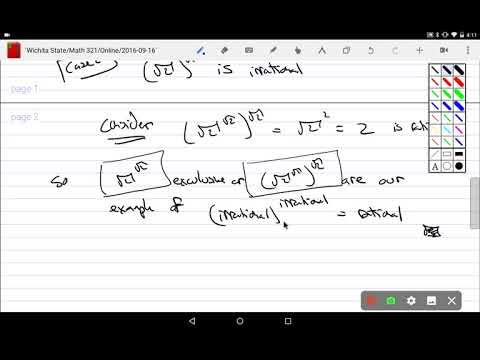 4:17
Wichita State/Math 321/Online/2016-09-16
Case 2 (√2)^√2 is irrational
page 1
page 2
Consider (√2^√2)^√2 = √2^2 = 2 is
So √2^√2 exclusive or (√2^√2)^√2 are our
example of (irrational)^irrational = rational
A